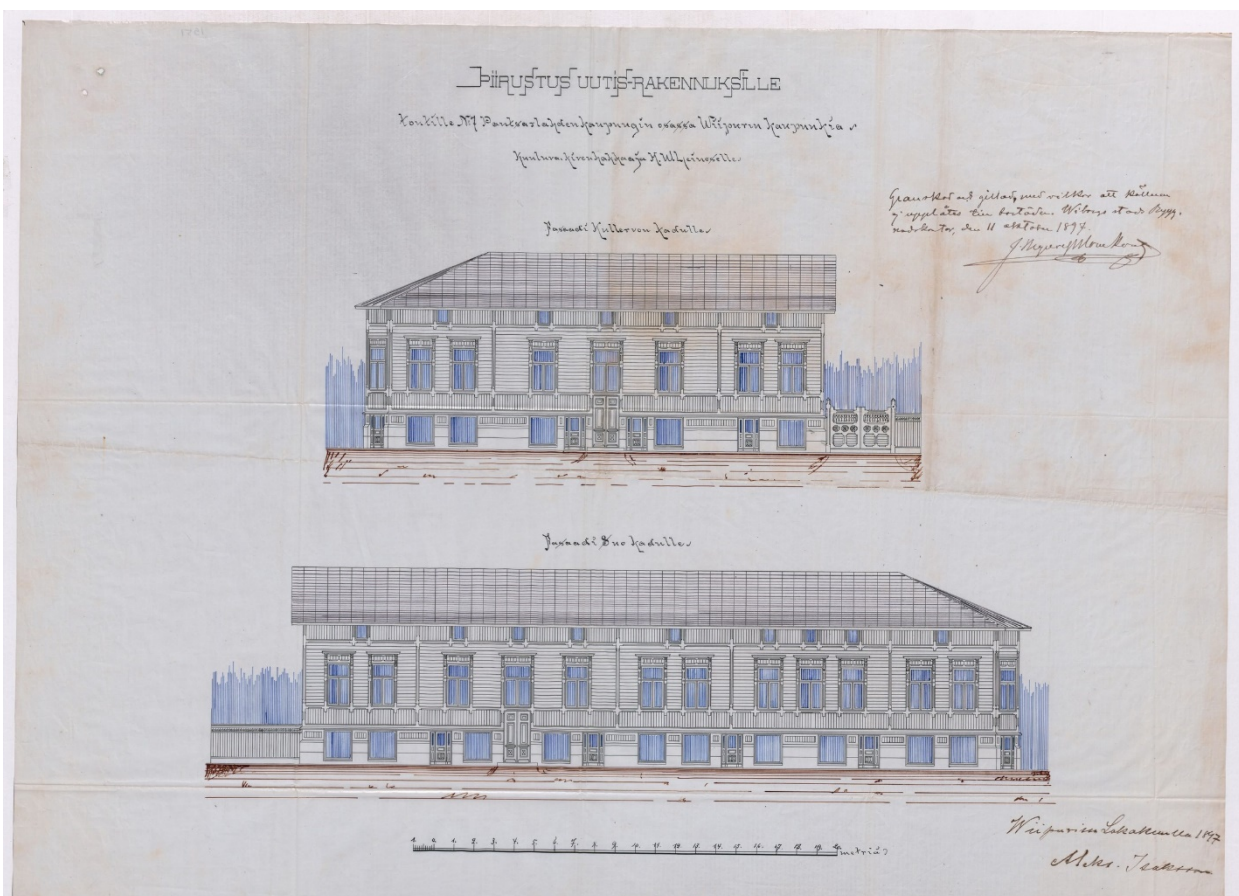 PIIRUSTUS UUTIS-RAKENNUKSILLE
tontille № 7 Pantsarlahden kaupungin osassa Wiipurin kaupunkia
Kuuluva kivenhakkaaja
Fasaadi Kullervon kadulle
Granskad och gillad, med vilkor att källaren
ej upplåtes till bostäder. Wiborgs stads Bygg-
nadskontor, den 11 oktober 1897.
Fasaadi Suo kadulle
1 0 1 2 3 4 5 6 7 8 9 10 11 12 13 14 15 16 17 18 19 20 metriä
Wiipurissa Lokakuulla 1897
Aleks. Isaksson